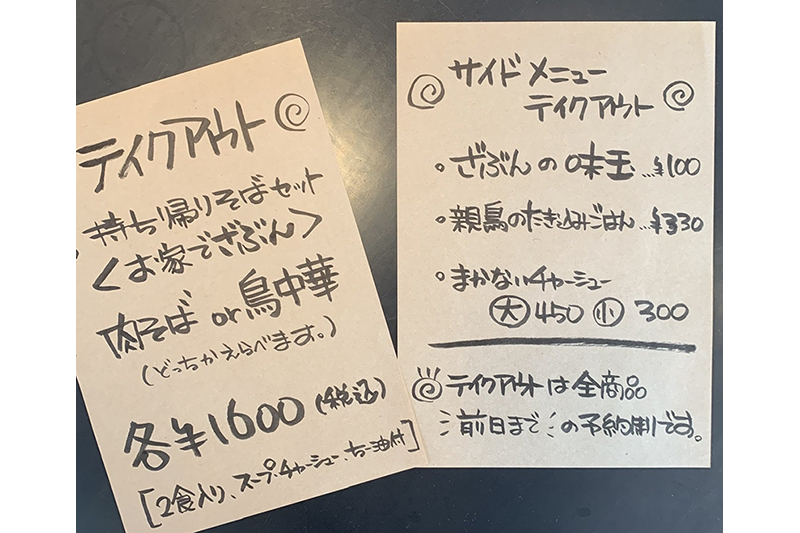 テイクアウト
持ち帰りそばセット
<お家でざぶん>
肉そば or 鳥中華
(どっちかえらべます。)
各¥1600(税込)
[2食入り、スープ、チャーシュー、ちー油付]
サイドメニュー
テイクアウト
。ざぶんの味玉…¥100
。親鳥のたき込みごはん…¥330
。まかないチャーシュー
大 450 小 300
テイクアウトは全商品
前日までの予約制です。